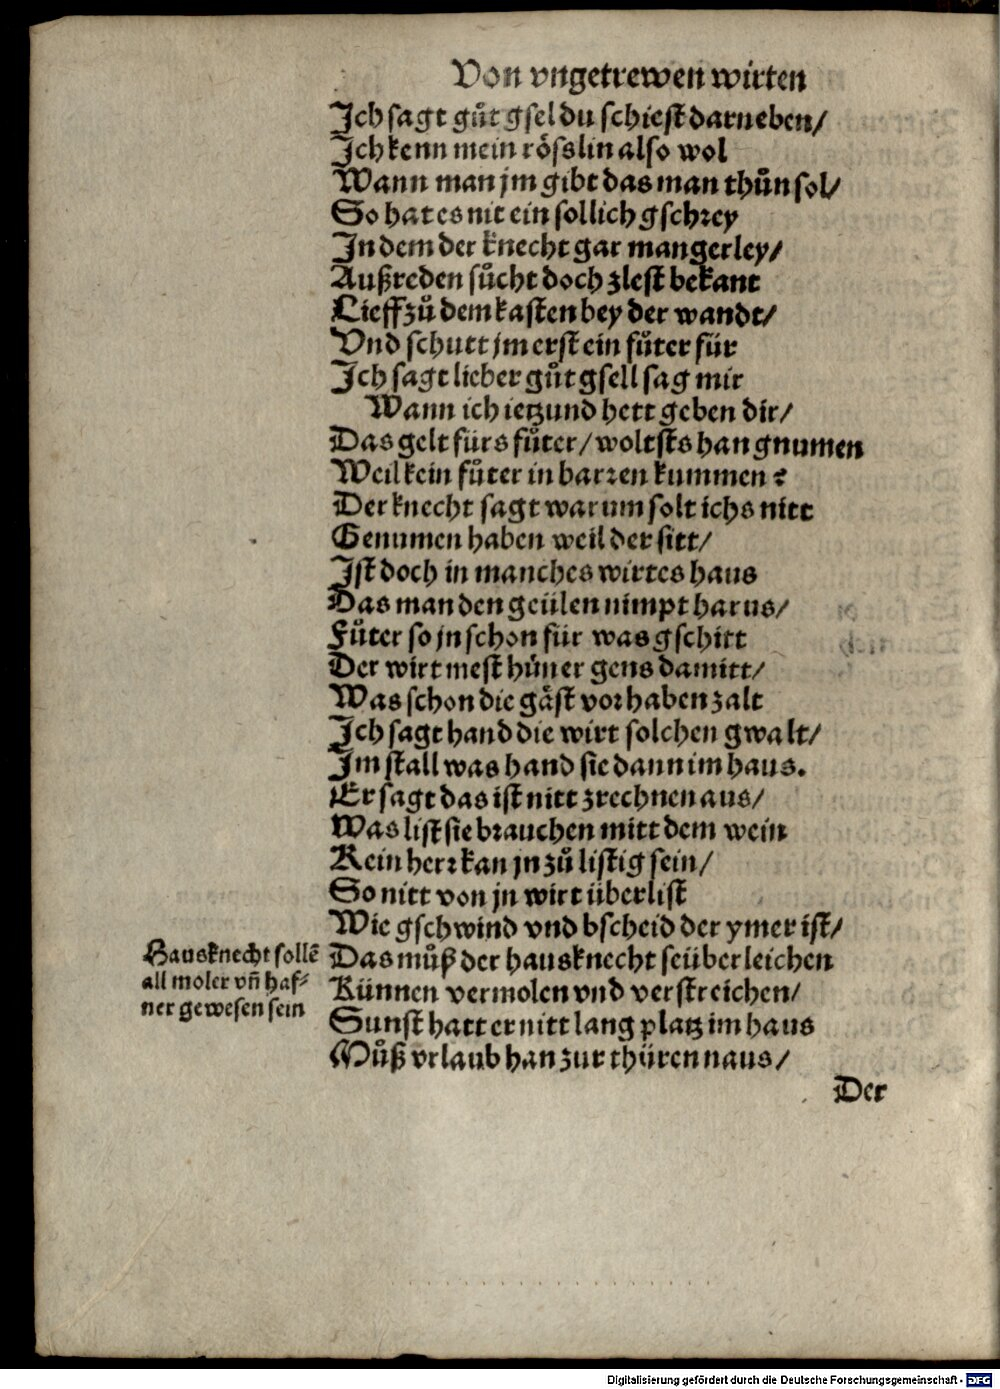 Von vngetrewen wirten
Ich sagt gůt gsel du schiest darneben/
Ich kenn mein rösslin also wol
Wann man jm gibt das man thůn sol/
So hat es nit ein sollich gschrey
In dem der knecht gar mangerley/
Außreden sůcht doch zlest bekant
Lieff zů dem kasten bey der wandt/
Vnd schutt jm erst ein fůter für
Ich sagt lieber gůt gsell sag mir
Wann ich ietzund hett geben dir/
Das gelt fürs fůter/ woltsts han gnumen
Weil kein fůter in barren kummen?
Der knecht sagt warum solt ichs nitt
Genumen haben weil der sitt/
Ist doch in manches wirtes haus
Das man den geülen nimpt harus/
Fůter so jn schon für was gschitt
Der wirt mest hüner gens damitt/
Was schon die gäst vor haben zalt
Ich sagt hand die wirt solchen gwalt/
Im stall was hand sie dann im haus.
Er sagt das ist nitt zrechnen aus/
Was list sie brauchen mitt dem wein
Kein herr kan jn zů listig sein/
So nitt von jn wirt überlist
Wie gschwind vnd bscheid der ymer ist/
Hausknecht sollē
all moler vn̄ haf-
ner gewesen sein
Das můß der hausknecht seüberleichen
Künnen vermolen vnd verstreichen/
Sunst hatt er nitt lang platz im haus
Můß vrlaub han zur thüren naus/
Der
Digitalisierung gefördert durch die Deutsche Forschungsgemeinschaft - DFG